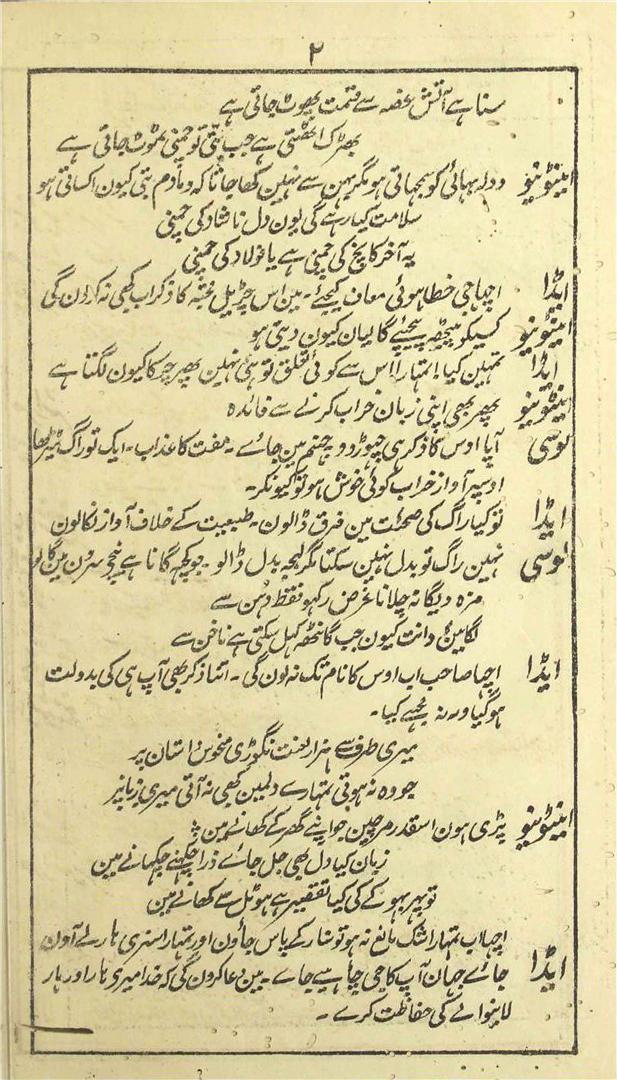 ۲
سنا ہے آتش غصہ سے قسمت پھوٹ جاتی ہے
بھڑک اٹھتی ہے جب بتی تو چمنی ٹوٹ جاتی ہے
اینٹونیو دولہ بھائی کو سمجھاتی ہو مگر بہن سے نہین کہا جاتا کہ دمادم بتی کیون اکساتی ہو
سلامت کیا رہے گی یون دل ناشاد کی چمنی
یہ آخر کانچ کی چمنی ہے یا فولاد کی چمنی
ایڈا اچھا جی خطا ہوئی معاف کیجئے۔ مین اس چڑیل کا ذکر اب کبھی نہ کرون گی
اینٹونیو کسیکو پیٹھ پیچھے گالیان کیون دیتی ہو
ایڈا تمہین کیا، تمہارا اس سے کوئی تعلق تو ہئی نہین پھر چرکا کیون لگتا ہے
اینٹونیو پھر بھی اپنی زبان خراب کرنے سے فائدہ
لوسی آپا اوس کا ذکر ہی چھوڑ دو جہنم مین جائے۔ مفت کا عذاب۔ ایک تو راگ ٹیڑھا
اوسپہ آواز خراب کوئی خوش ہو تو کیونکر۔
ایڈا تو کیا راگ کی صحت مین فرق ڈالون۔ طبیعت کے خلاف آواز نکالون
لوسی نہین راگ تو بدل نہین سکتا مگر لہجہ بدل ڈالو۔ جو کچھ گانا ہے نیچے سرون مین گالو
مزہ دیگا نہ چلانا غرض رکھو فقط دھن سے
لگائین دانت کیون جب گانٹھ کھل سکتی ہے ناخن سے
ایڈا اچھا صاحب اب اوس کا نام تک نہ لون گی۔ اتنا ذکر بھی آپ ہی کی بدولت
ہو گیا ورنہ مجھے کیا۔
میری طرف سے ہزار لعنت نگوڑی منحوس داستان پر
جو وہ نہ ہوتی تمہارے دلمین کبھی نہ آتی میری زبانپر
اینٹونیو پڑی ہون اسقدر مرچین جو اپنے گھر کے کھانے مین
زبان کیا دل بھی جل جائے ذرا چکھنے چکھانے مین
تو پھر بھوکے کی کیا تقصیر ہے ہوٹل سے کھانے مین
اچھا اب تمہارا شک مانع نہ ہو تو سنار کے پاس جاؤن اور تمہارا سنہری ہار لے آون
ایڈا جائے جہان آپ کا جی چاہے جائے۔ مین دعا کرون گی کہ خدا میری ہار اور ہار
لانیوالے کی حفاظت کرے۔